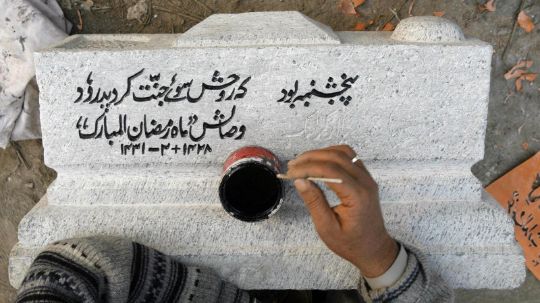 پنجشنبہ بود کہ روحش سوئے جنّت کرد بدرود
وصالش "ماہ رمضان المبارک"
۱۴۳۱ ۱۴۲۸